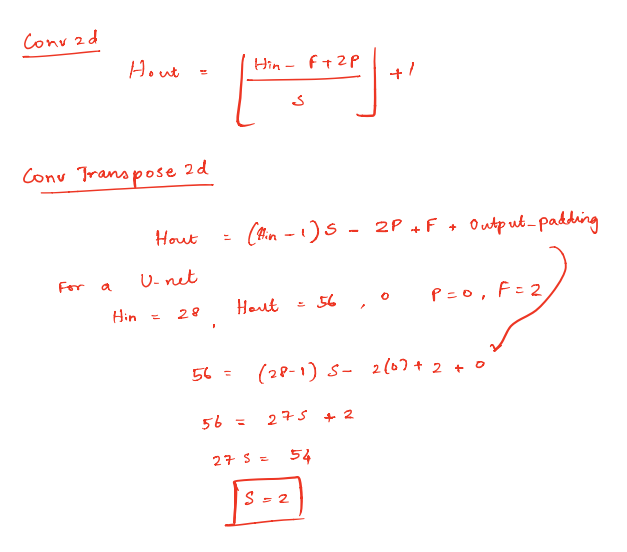 Conv 2d
Hout = [ (Hin - F + 2P) / S ] + 1
Conv Transpose 2d
Hout = (Hin - 1) S - 2P + F + Output_padding
For a U-net
Hin = 28 , Hout = 56 , 0 P = 0 , F = 2
56 = (28-1) S - 2(0) + 2 + 0
56 = 27S + 2
27 S = 54
S = 2